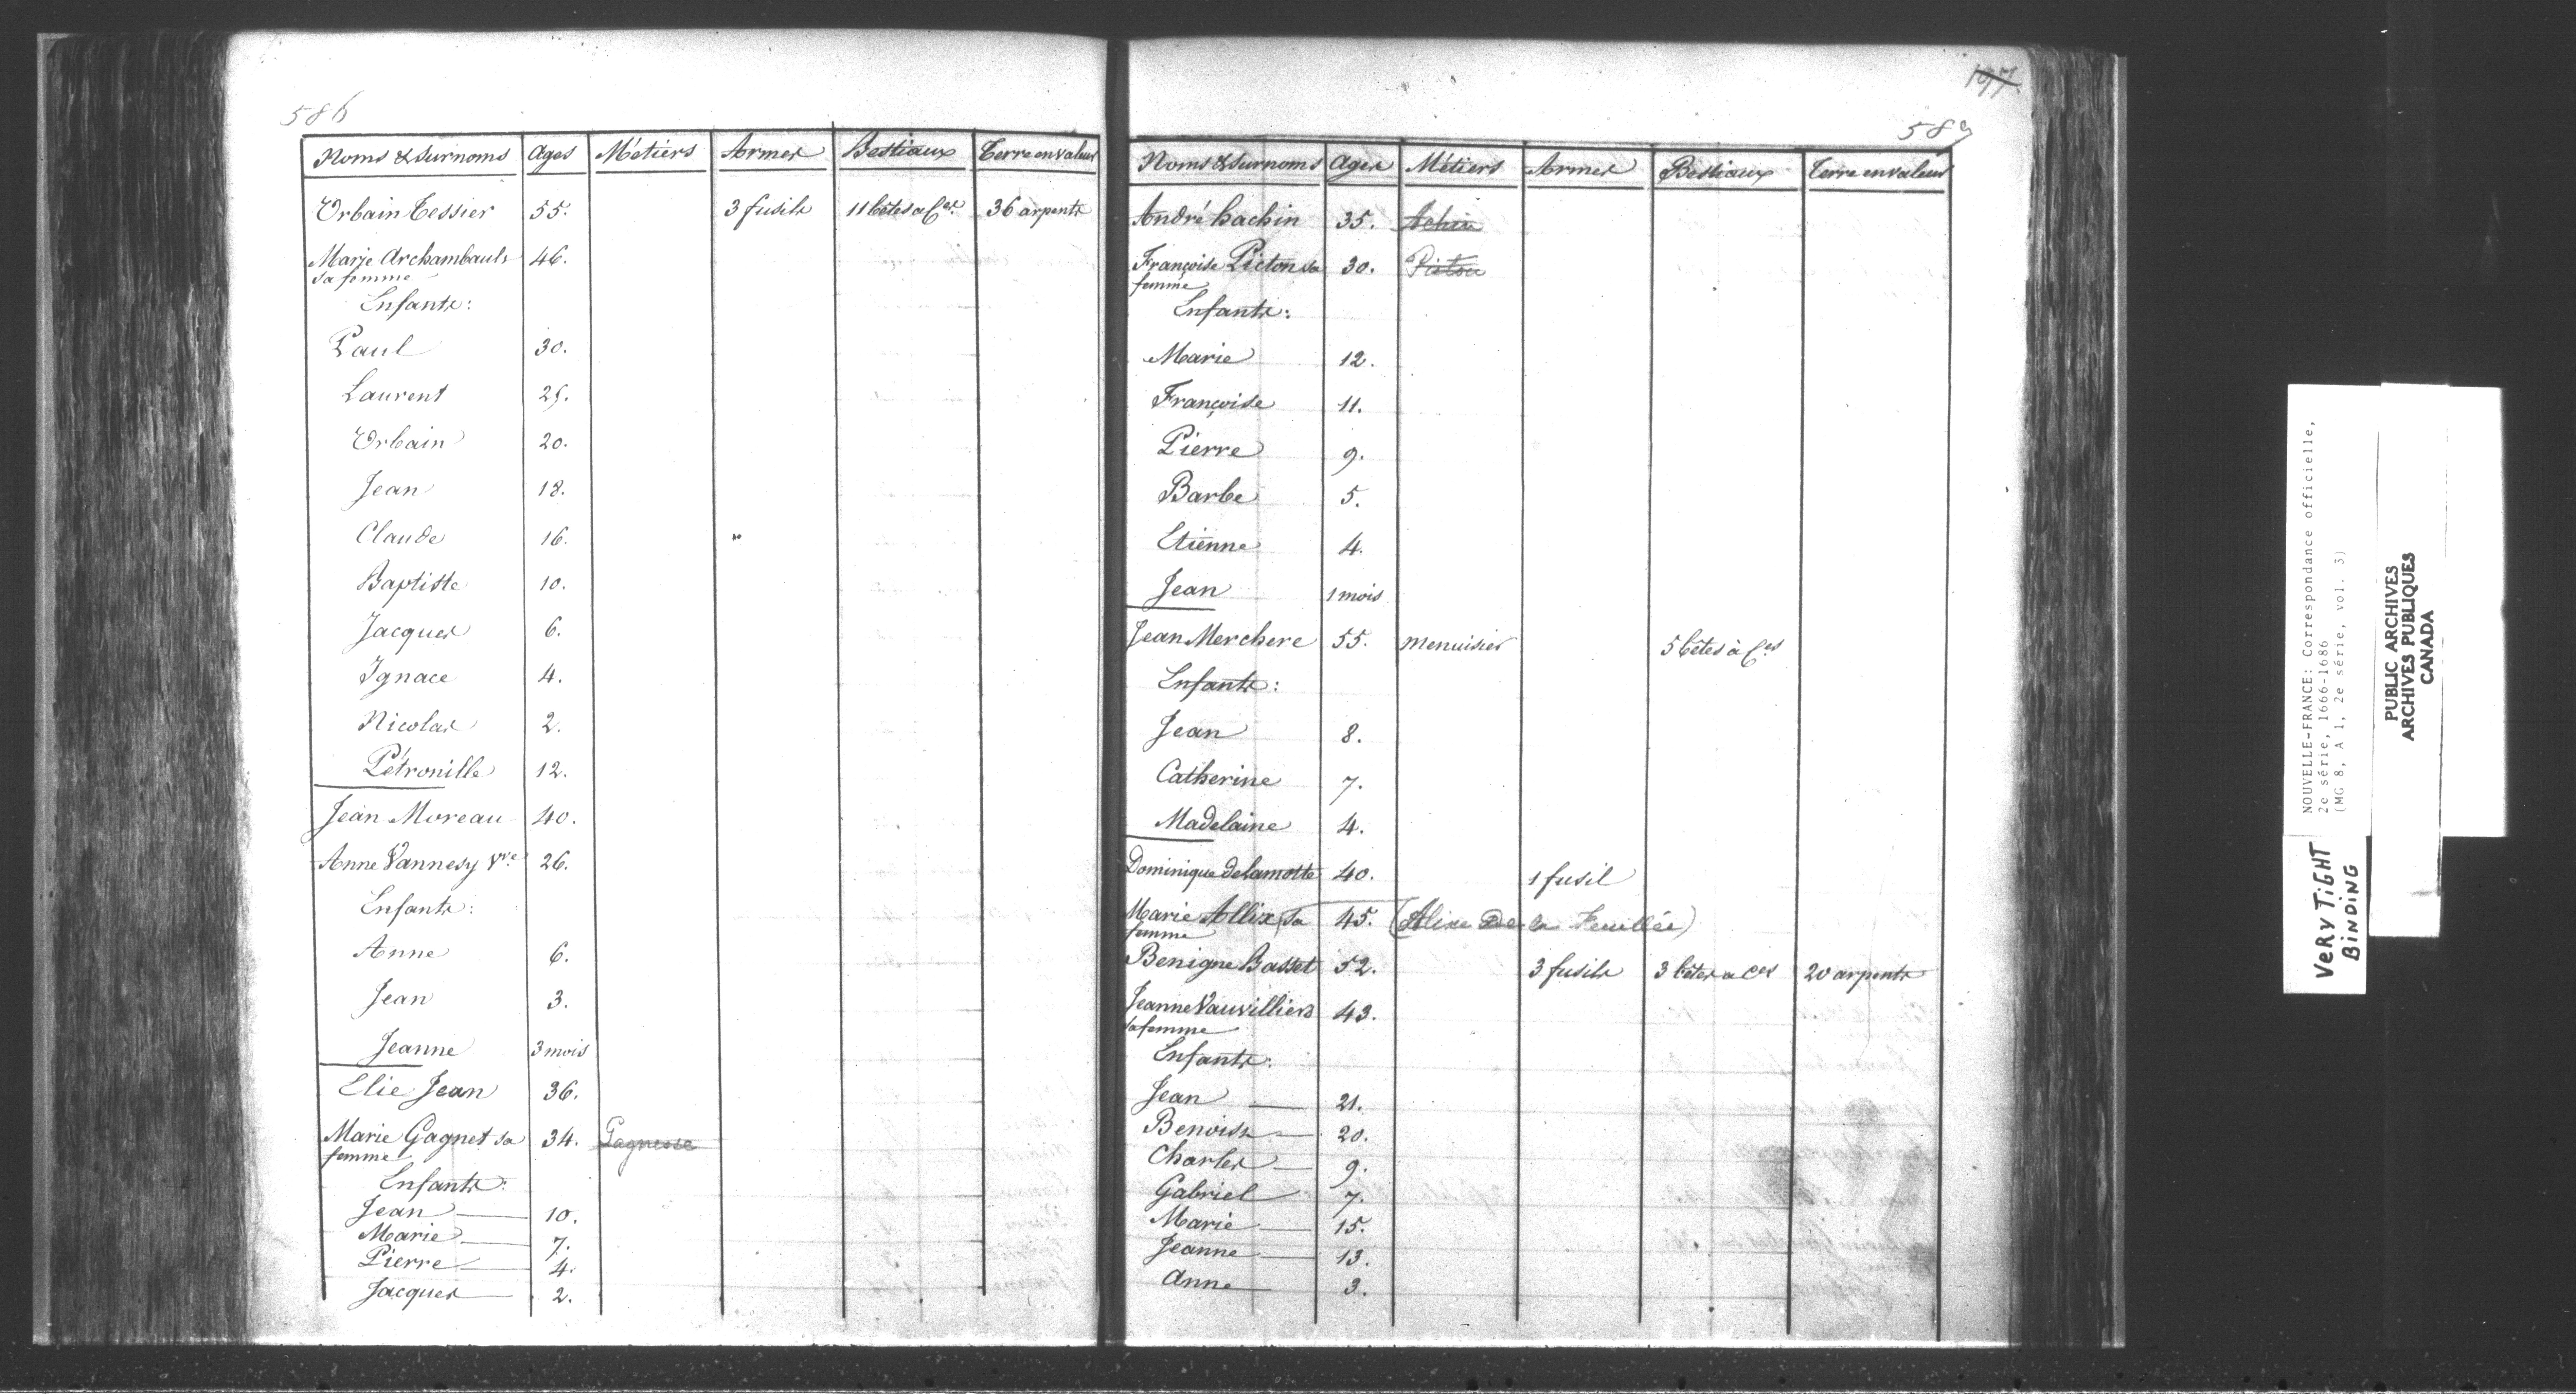 586
Noms & Surnoms Ages Métiers Armes Bestiaux Terre en valeur
Urbain Tessier 55. 3 fusils 11 bêtes a C.es 36 arpents
Marie Archambault 46.
sa femme
Enfants:
Paul 30.
Laurent 25.
Urbain 20.
Jean 18.
Claude 16.
Baptiste 10.
Jacques 6.
Ignace 4.
Nicolas 2.
Pétronille 12.
Jean Moreau 40.
Anne Vannesy Vve 26.
Enfants:
Anne 6.
Jean 3.
Jeanne 3 mois
Elie Jean 36.
Marie Gagnet sa 34. Gagnesse
femme
Enfants:
Jean 10.
Marie 7.
Pierre 4.
Jacques 2.
197
Noms & Surnoms Ages Métiers Armes Bestiaux Terre en valeur
André hachin 35. Achin
Françoise Picton sa 30. Piétou
femme
Enfants:
Marie 12.
Françoise 11.
Pierre 9.
Barbe 5.
Etienne 4.
Jean 1 mois
Jean Merchere 55. menuisier 5 bêtes à C.es
Enfants:
Jean 8.
Catherine 7.
Madelaine 4.
Dominique delamotte 40. 1 fusil
Marie Allix, sa 45. (Alixe De la Feuillée)
femme
Benigne Basset 52. 3 fusils 3 bêtes a Ces 20 arpents
Jeanne Vauvilliers 43.
sa femme
Enfants:
Jean 21.
Benoist 20.
Charles 9.
Gabriel 7.
Marie 15.
Jeanne 13.
Anne 3.
NOUVELLE-FRANCE: Correspondance officielle,
2e série, 1666-1686
(MG 8, A 1, 2e série, vol. 3)
VERY TIGHT
BINDING
PUBLIC ARCHIVES
ARCHIVES PUBLIQUES
CANADA